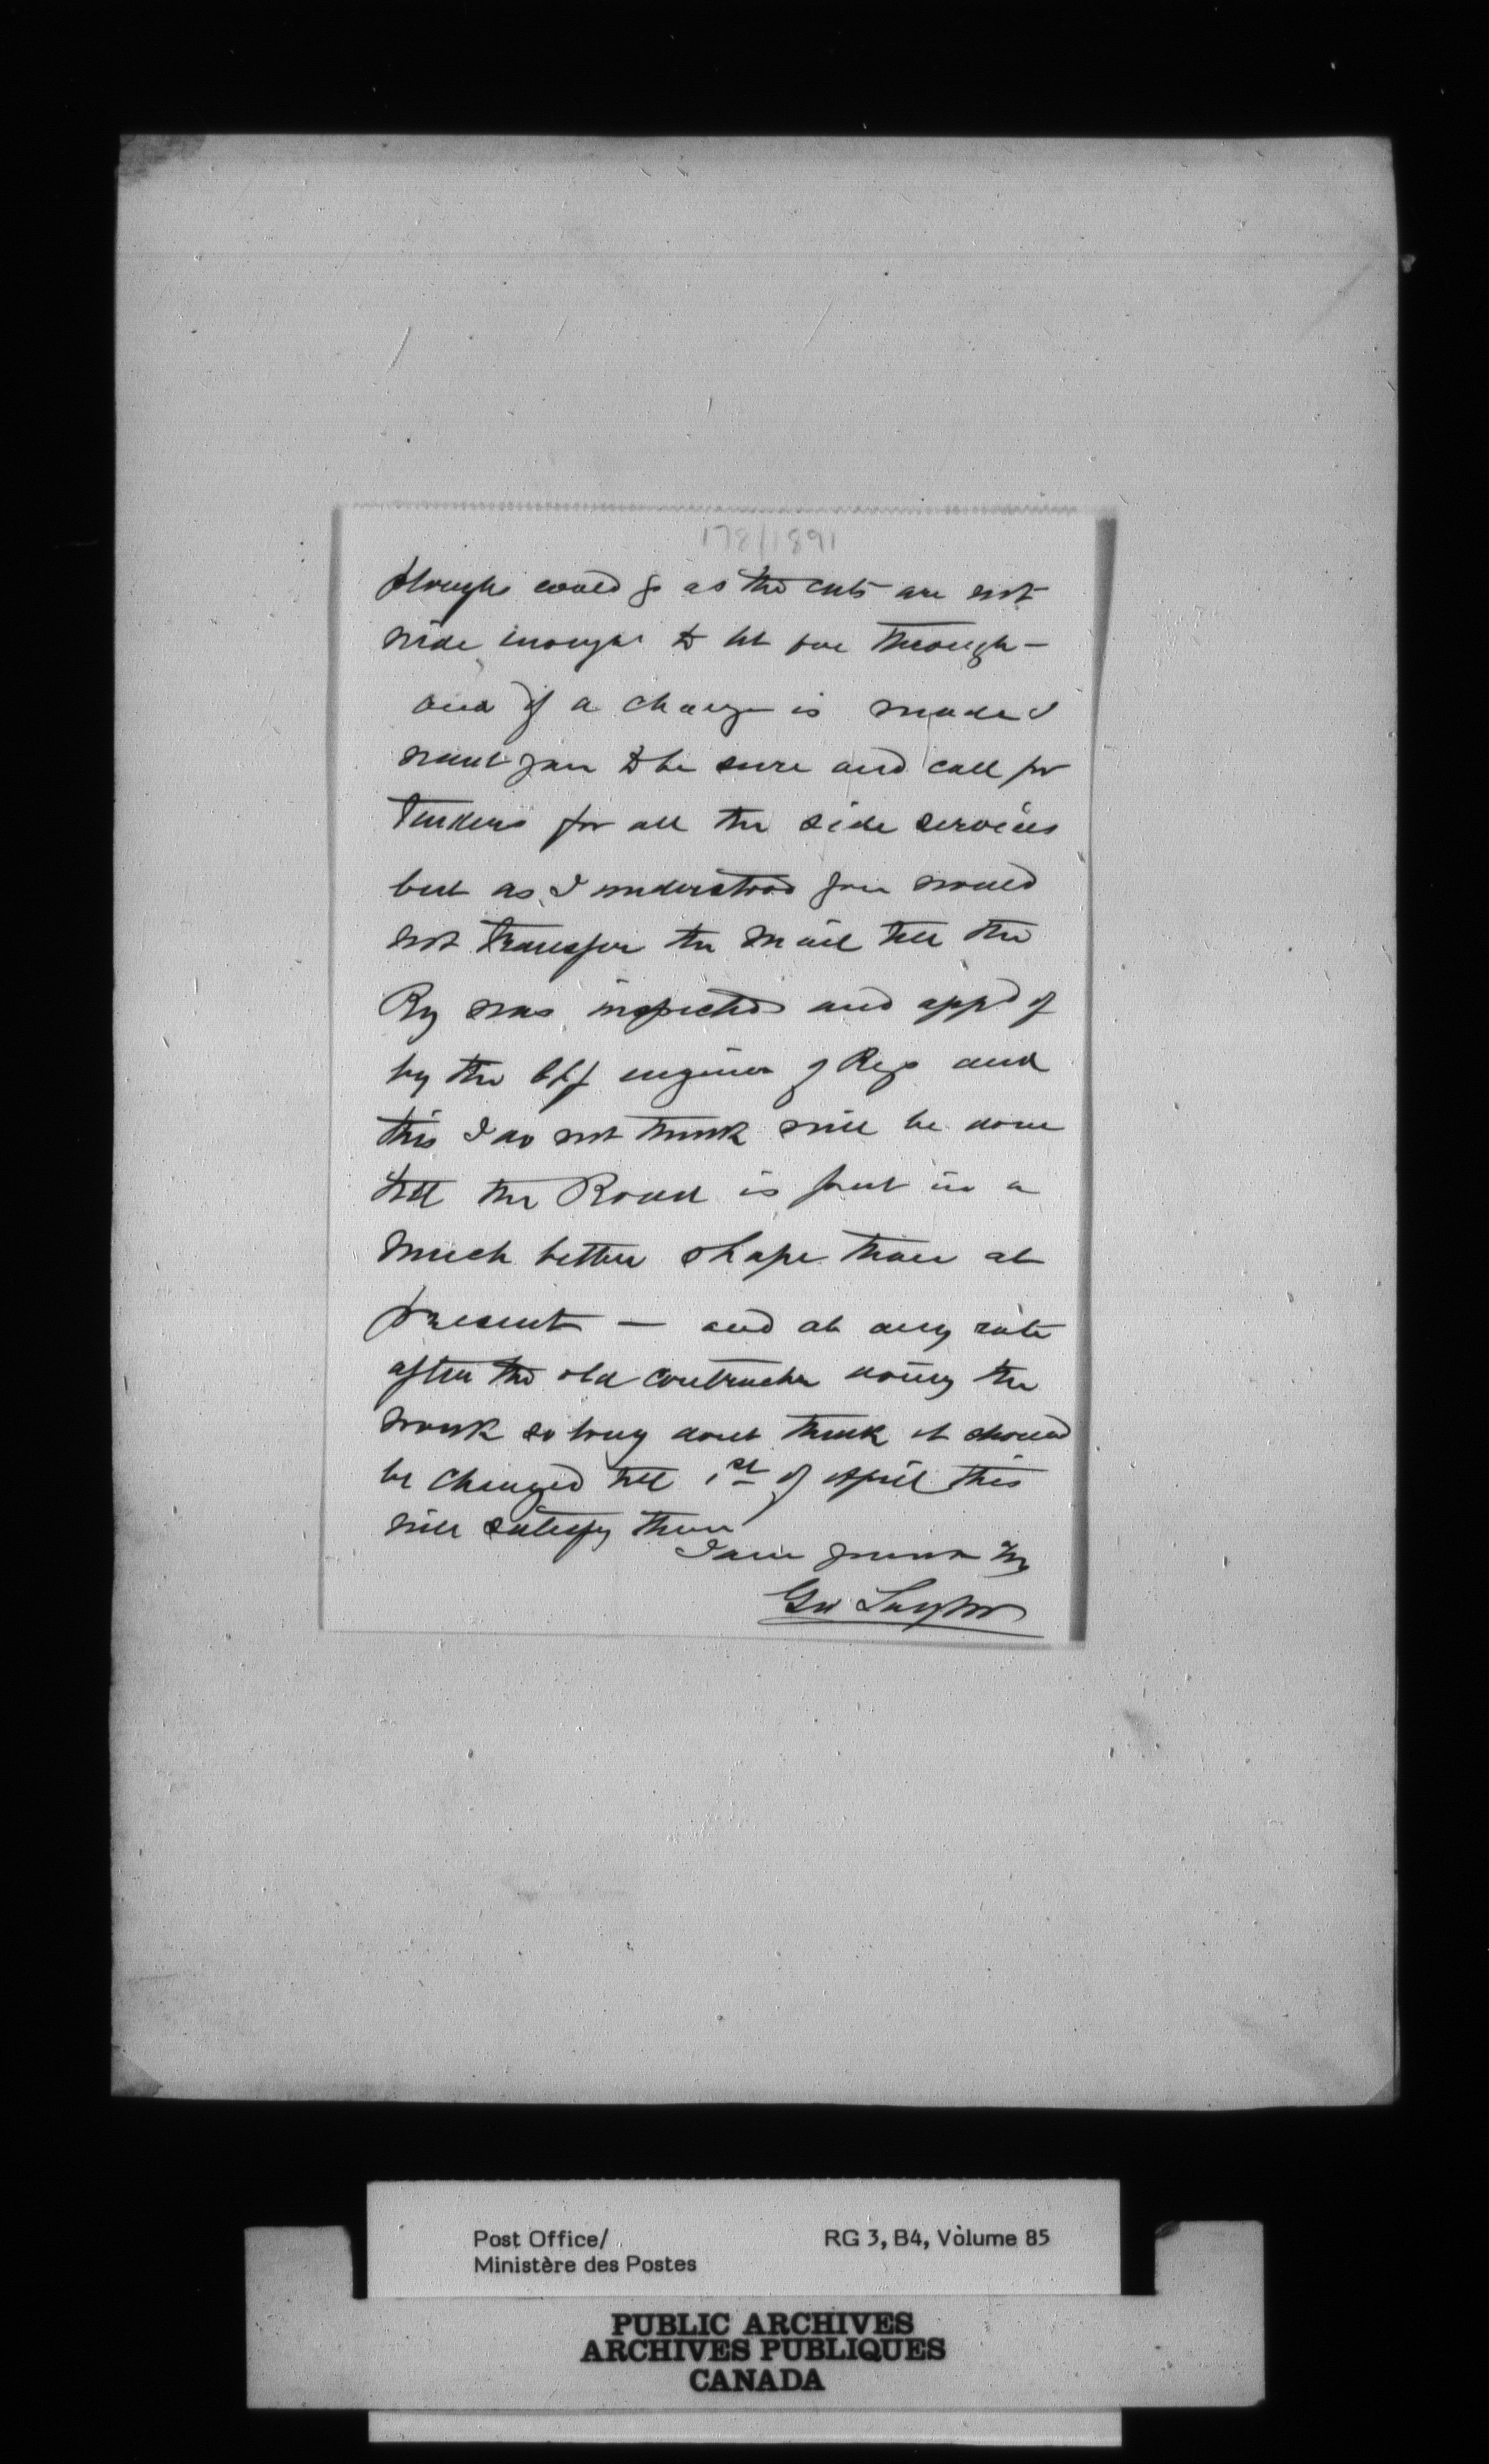 178/1891
ploughs could go as the cuts are not
wide enough to let one through —
and if a change is made I
want you to be sure and call for
Tenders for all the side services
but as I understood you would
not transfer the mail till the
Ry was inspected and appd of
by the engineer of Rys and
this I do not think will be done
till the Road is put in a
much better shape than at
present — and at any rate
after the old contractor doing the
work so long dont think it should
be changed till 1st of April this
will satisfy them
I am yours
Geo Taylor
Post Office/
Ministère des Postes
RG 3, B4, Volume 85
PUBLIC ARCHIVES
ARCHIVES PUBLIQUES
CANADA